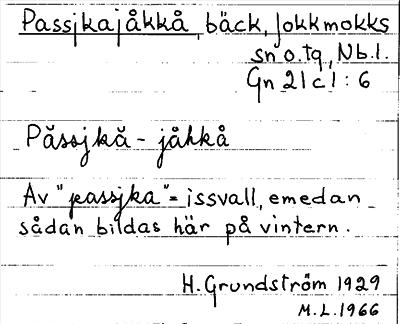 Passjkajåkkå, bäck, Jokkmokks
sn o. tg, Nb.l.
Gn 21 c l : 6
Påssjkå - jåhkå
Av "passjka" = issvall, emedan
sådan bildas här på vintern.
H. Grundström 1929
M.L. 1966